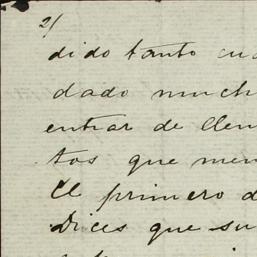 2/
dido tanto cui
dado much
entrar de llen
tos que men
El primero d
Dices que su